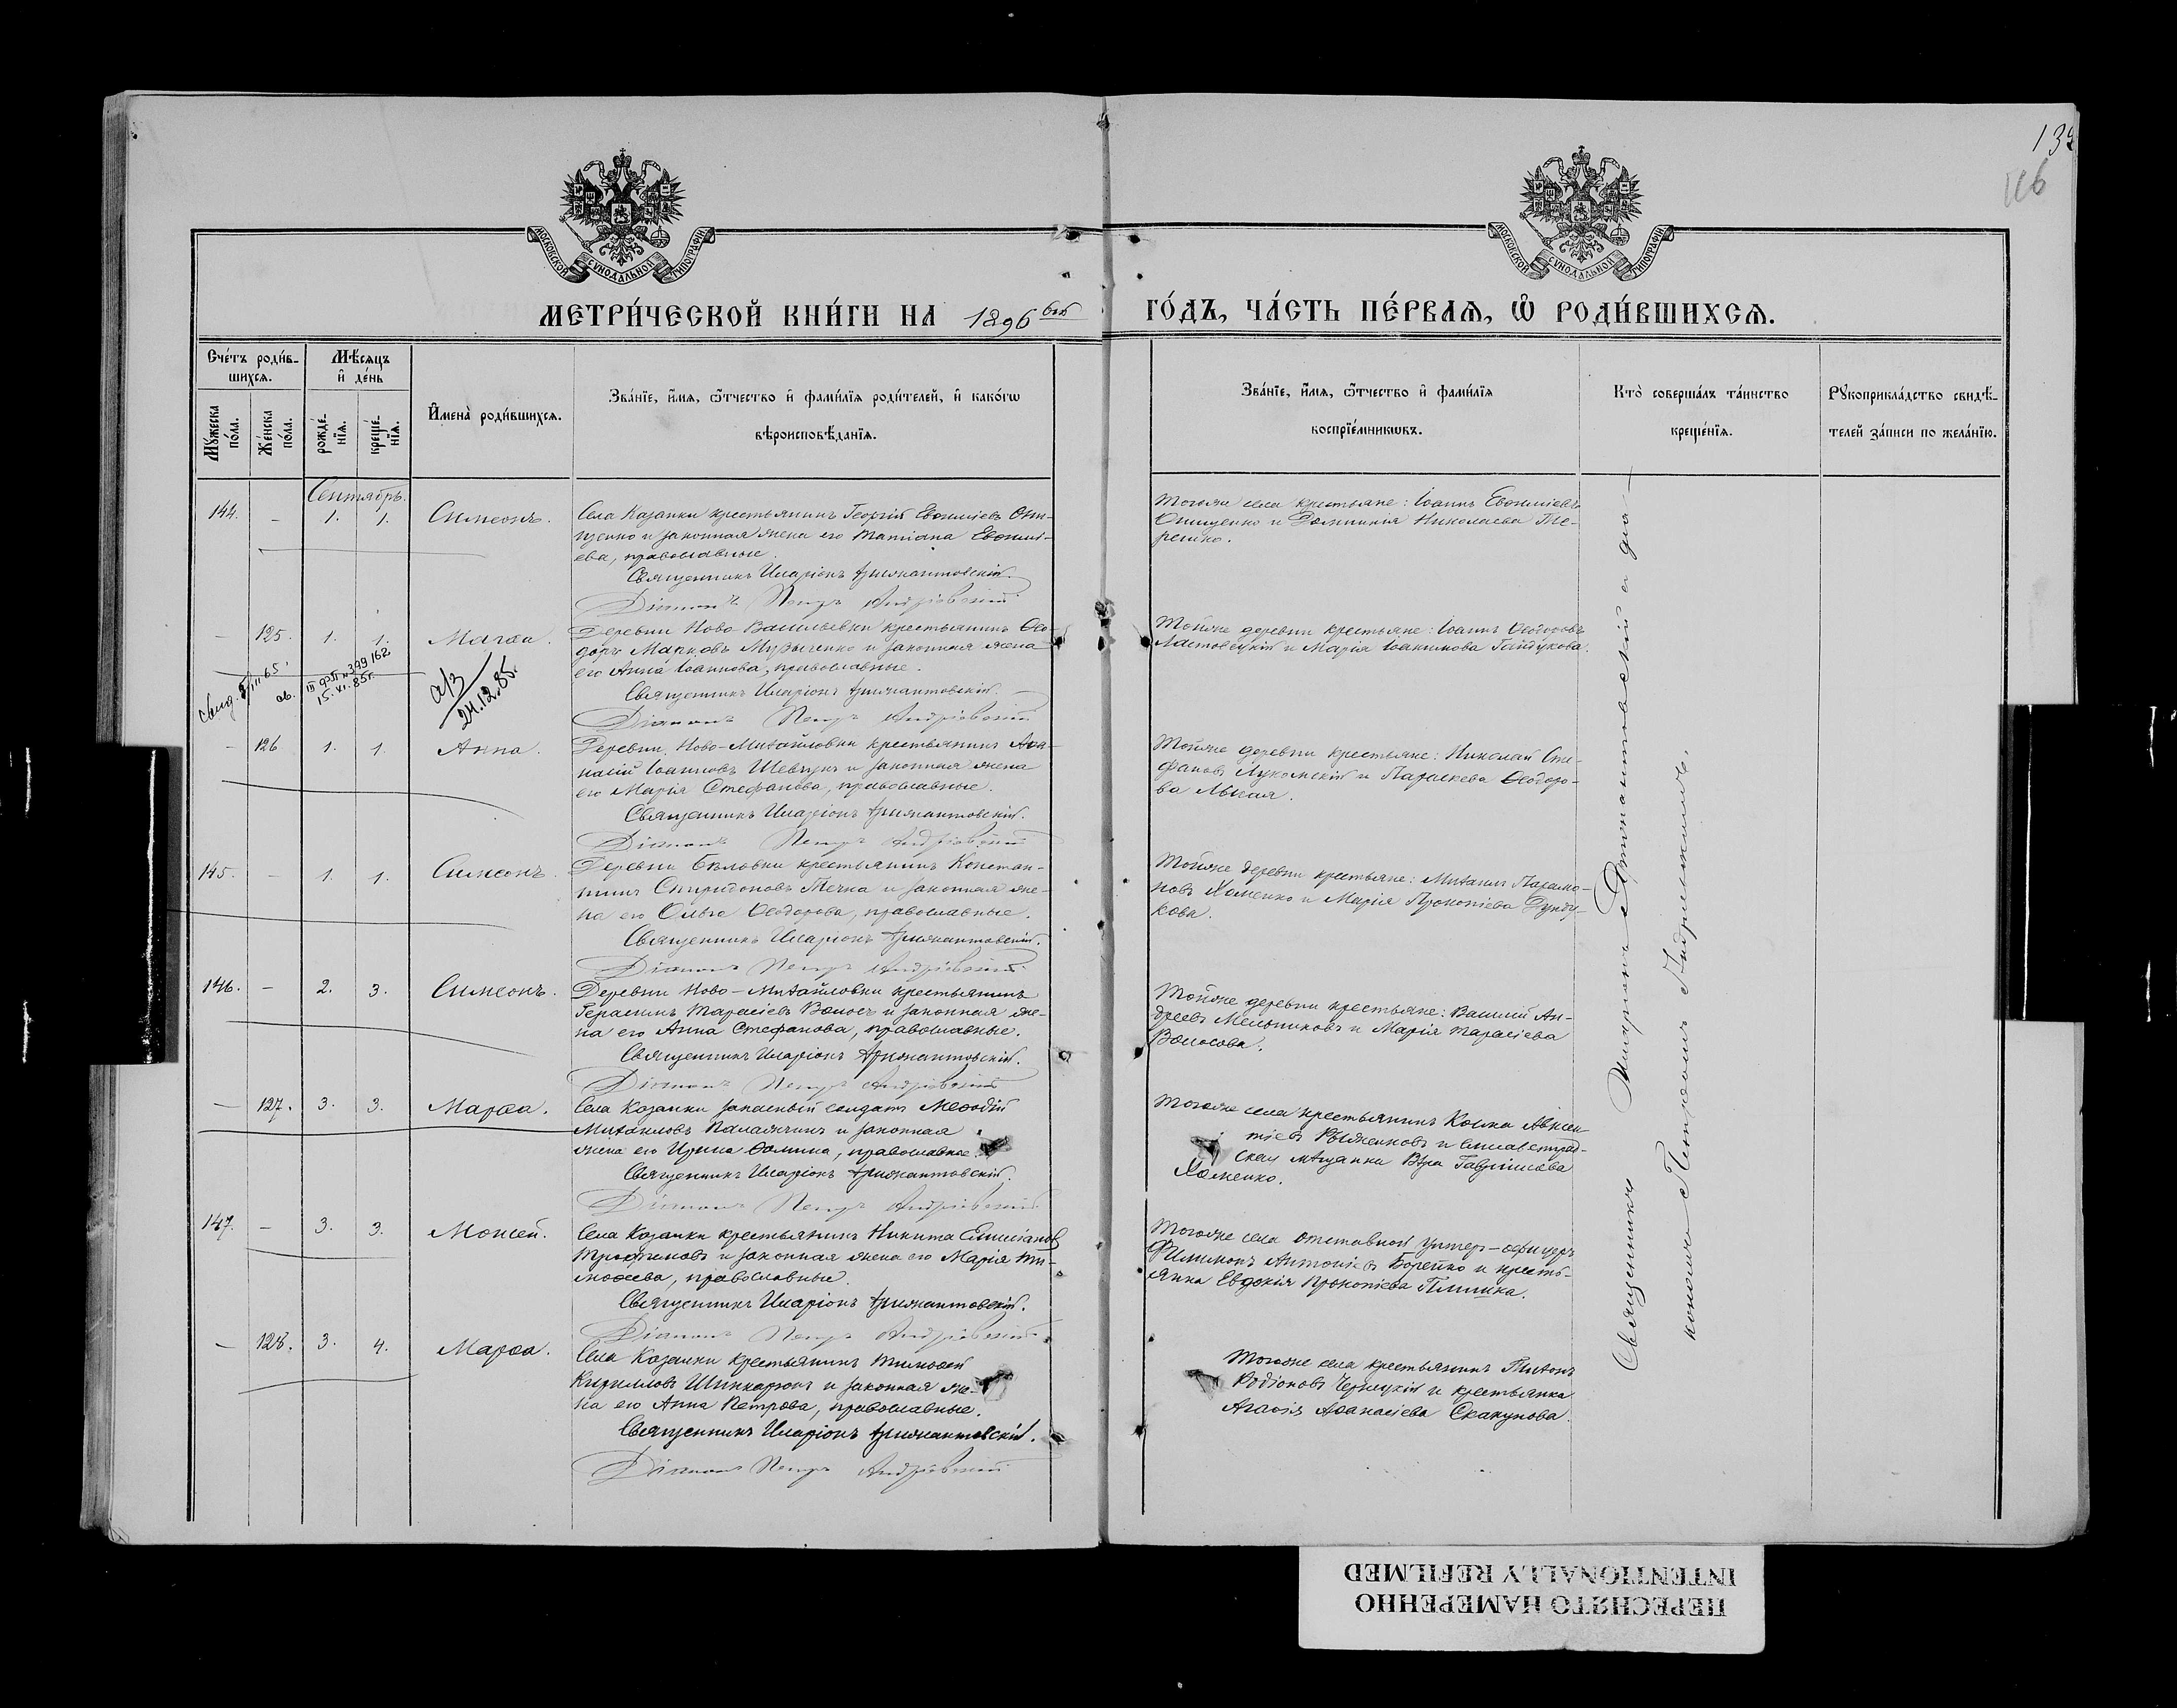 139
116
МОСКОВСКОЙ СѴНОДАЛЬНОЙ ТИПОГРАФІИ
МОСКОВСКОЙ СѴНОДАЛЬНОЙ ТИПОГРАФІИ
МЕТРИ́ЧЕСКОЙ КНИ́ГИ НА 1896 ой
ГО́ДЪ, ЧА́СТЬ ПЕ́РВАѦ, Ѡ҆ РОДИ́ВШИХСѦ.
Сче́тъ роди́в-
шихсѧ.
Мꙋ́жеска по́ла.
Же́нска по́ла.
Мѣ́сѧцъ
и҆ де́нь
рожде́-
нїѧ.
креще́-
нїѧ.
И҆мена̀ роди́вшихсѧ.
Зва́нїе, и҆́мѧ, ѻ҆́тчество и҆ фами́лїѧ роди́телей, и҆ како́гѡ
вѣроисповѣ́данїѧ.
Зва́нїе, и҆́мѧ, ѻ҆́тчество и҆ фами́лїѧ
воспрїе́мникѡвъ.
Кто̀ соверша́лъ та́инство
креще́нїѧ.
Рꙋкоприкла́дство свидѣ́-
телей за́писи по жела́нїю.
Сентябрь.
144. - 1. 1. Симеонъ.
Села Казанки крестьянинъ Георгій Евѳиміевъ Они-
щенко и законная жена его Татіана Евѳимі-
ева, православные.
Священникъ Иларіонъ Аржантовскій.
Діаконъ Петръ Андріевскій
Тогоже села крестьяне: Іоаннъ Евѳиміевъ
Онищенко и Домникія Николаева Те-
решко.
- 125. 1. 1. Марѳа.
Деревни Ново-Васильевки крестьянинъ Ѳео-
доръ Марковъ Музыченко и законная жена
его Анна Іоаннова, православные.
Священникъ Иларіонъ Аржантовскій.
Діаконъ Петръ Андріевскій
Тойже деревни крестьяне: Іоаннъ Ѳеодоровъ
Ластовецкій и Марія Іоакимова Гайдукова.
15.XI.85г.
24.12.85г.
- 126 1. 1. Анна.
Деревни Ново-Михайловки крестьянинъ Аѳа-
насій Іоанновъ Шевчукъ и законная жена
его Марія Стефанова, православные.
Священникъ Иларіонъ Аржантовскій.
Діаконъ Петръ Андріевскій
Тойже деревни крестьяне: Николай Сте-
фановъ Лукомскій и Параскева Ѳеодоро-
ва
145. - 1. 1. Симеонъ.
Деревни Бѣловки крестьянинъ Констан-
тинъ Спиридоновъ Течка и законная же-
на его Ольга Ѳеодорова, православные.
Священникъ Иларіонъ Аржантовскій.
Діаконъ Петръ Андріевскій
Тойже деревни крестьяне: Михаилъ Парамо-
новъ Хоменко и Марія Прокопіева Дунду-
кова.
146. - 2. 3. Симеонъ.
Деревни Ново-Михайловки крестьянинъ
Герасимъ Тарасіевъ Волосъ и законная же-
на его Анна Стефанова, православные.
Священникъ Иларіонъ Аржантовскій.
Діаконъ Петръ Андріевскій
Тойже деревни крестьяне: Василій Ан-
дреевъ Мельниковъ и Марія Тарасіева
Волосова.
- 127. 3. 3. Марѳа.
Села Казанки запасный солдатъ Меѳодій
Михаиловъ Паламчинъ и законная
жена его Ирина Ѳомина, православные.
Священникъ Иларіонъ Аржантовскій.
Діаконъ Петръ Андріевскій
Тогоже села крестьянинъ Косма Авксен-
тіевъ Рыженковъ и Елисаветград-
ская мѣщанка Вѣра Гавриилова
Хоменко.
147. - 3. 3. Моисей.
Села Казанки крестьянинъ Никита Емиліановъ
Трофимовъ и законная жена его Марія Ти-
моѳеева, православные.
Священникъ Иларіонъ Аржантовскій.
Діаконъ Петръ Андріевскій
Тогоже села отставной унтер-офицеръ
Филимонъ Антоніевъ Борейко и кресть-
янка Евдокія Прокопіева Плишка.
- 128. 3. 4. Марѳа.
Села Казанки крестьянинъ Тимоѳей
Кирилловъ Шинкарюкъ и законная же-
на его Анна Петрова, православные.
Священникъ Иларіонъ Аржантовскій.
Діаконъ Петръ Андріевскій
Тогоже села крестьянинъ Тихонъ
Родіоновъ Чернецкій и крестьянка
Агаѳія Аѳанасіева Скакунова.
Священникъ Иларіонъ Аржантовскій съ діа-
кономъ Петромъ Андріевскимъ.
ПЕРЕСНЯТО НАМЕРЕННО
INTENTIONALLY REFILMED